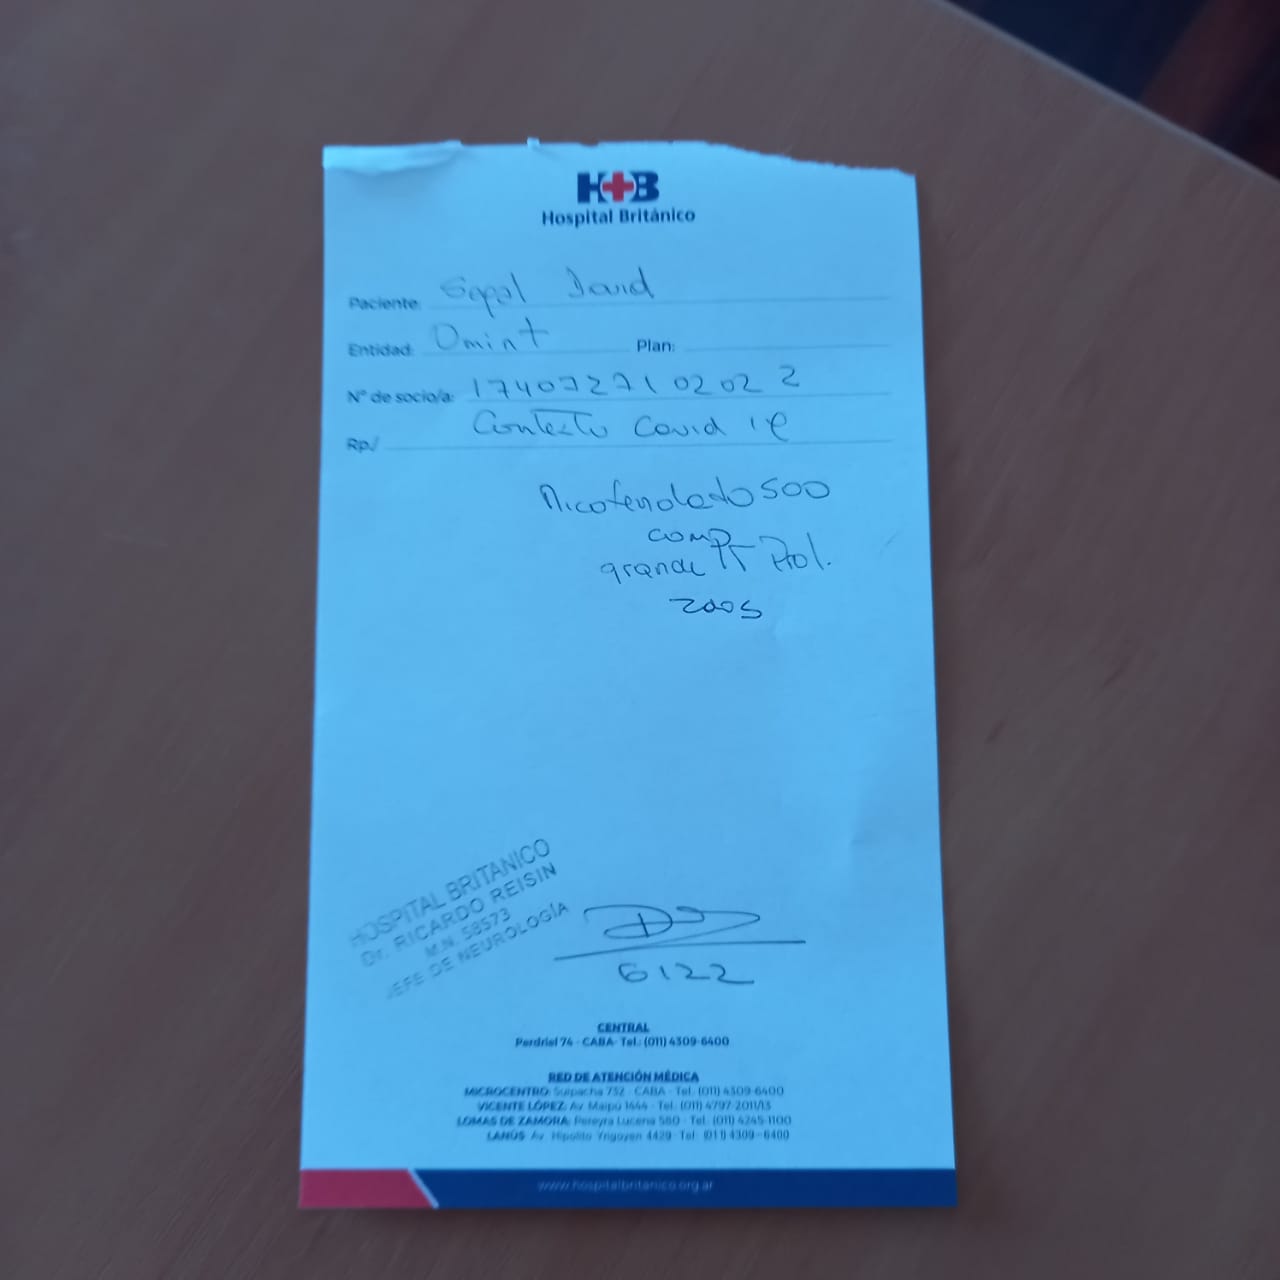 H+B
Hospital Británico
Paciente: Segal David
Entidad: Omint Plan:
N° de socio/a: 1740727102022
Rp./ Contexto Covid 19
Micofenolato 500
comp
grande TT Prol.
HOSPITAL BRITANICO
Dr. RICARDO REISIN
M.N. 58573
JEFE DE NEUROLOGÍA
6122
CENTRAL
Perdriel 74 - CABA- Tel.: (011) 4309-6400
RED DE ATENCIÓN MÉDICA
MICROCENTRO: Suipacha 732 - CABA - Tel. (011) 4309-6400
VICENTE LÓPEZ: Av. Maipú 1444 - Tel. (011) 4797-2011/13
LOMAS DE ZAMORA: Pereyra Lucena 580 - Tel. (011) 4245-1100
LANÚS: Av. Hipólito Yrigoyen 4429 - Tel. (011) 4309-6400
www.hospitalbritanico.org.ar